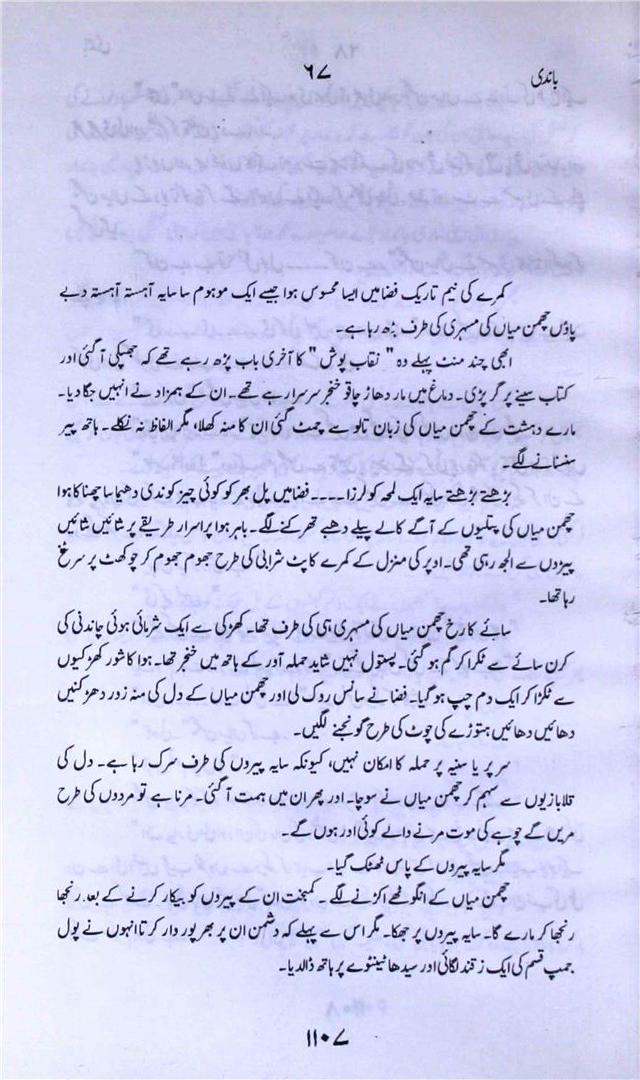 باندی
۶۷
کمرے کی نیم تاریک فضا میں ایسا محسوس ہوا جیسے ایک موہوم سا سایہ آہستہ آہستہ دبے
پاؤں چھمن میاں کی مسہری کی طرف بڑھ رہا ہے۔
ابھی چند منٹ پہلے وہ " نقاب پوش " کا آخری باب پڑھ رہے تھے کہ جھپکی آ گئی اور
کتاب سینے پر گر پڑی۔ دماغ میں مار دھاڑ چاقو خنجر سرسرا رہے تھے۔ ان کے ہمزاد نے انہیں جگا دیا۔
مارے دہشت کے چھمن میاں کی زبان تالو سے چمٹ گئی ان کا منہ کھلا، مگر الفاظ نہ نکلے۔ ہاتھ پیر
سنسنانے لگے۔
بڑھتے بڑھتے سایہ ایک لمحہ کو لرزا۔۔۔۔ فضا میں پل بھر کو کوئی چیز کوندی دھیما سا چھناکا ہوا
چھمن میاں کی پتلیوں کے آگے کالے پیلے دھبے تھرکنے لگے۔ باہر ہوا پراسرار طریقے پر شائیں شائیں
پیڑوں سے الجھ رہی تھی۔ اوپر کی منزل کے کمرے کا پٹ شرابی کی طرح جھوم جھوم کر چوکھٹ پر سر پٹخ
رہا تھا۔
سائے کا رخ چھمن میاں کی مسہری ہی کی طرف تھا۔ کھڑکی سے ایک شرمائی ہوئی چاندنی کی
کرن سائے سے ٹکرا کر گم ہو گئی۔ پستول نہیں شاید حملہ آور کے ہاتھ میں خنجر تھا۔ ہوا کا شور کھڑکیوں
سے ٹکرا کر ایک دم چپ ہو گیا۔ فضا نے سانس روک لی اور چھمن میاں کے دل کی منہ زور دھڑکنیں
دھائیں دھائیں ہتوڑے کی چوٹ کی طرح گونجنے لگیں۔
سر پر یا سنیہ پر حملہ کا امکان نہیں، کیونکہ سایہ پیروں کی طرف سرک رہا ہے۔ دل کی
قلابازیوں سے سہم کر چھمن میاں نے سوچا۔ اور پھر ان میں ہمت آ گئی۔ مرنا ہے تو مردوں کی طرح
مریں گے چوہے کی موت مرنے والے کوئی اور ہوں گے۔
مگر سایہ پیروں کے پاس ٹھٹک گیا۔
چھمن میاں کے انگوٹھے اکڑنے لگے۔ کمبخت ان کے پیروں کو بیکار کرنے کے بعد رنجھا
رنجھا کر مارے گا۔ سایہ پیروں پر جھکا۔ مگر اس سے پہلے کہ دشمن ان پر بھرپور وار کرتا انہوں نے پول
جمپ قسم کی ایک زقند لگائی اور سیدھا ٹینٹوے پر ہاتھ ڈال دیا۔
۱۱۰۷